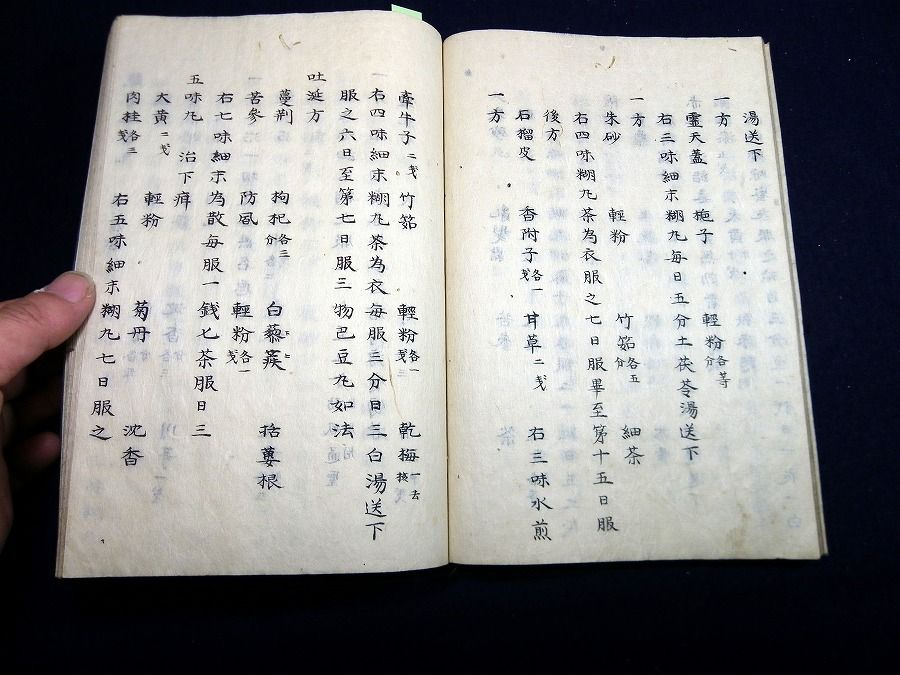 湯送下
一方 靈天蓋 梔子 輕粉各等分
右三味細末糊丸每日五分土茯苓湯送下
一方 朱砂 輕粉 竹筎各五分 細茶
右四味糊丸茶為衣服之七日服畢至第十五日服
後方
石榴皮 香附子各一戔 甘草二戔 右三味水煎
一方
牽牛子二戔 竹筎 輕粉各一戔 乾梅一去核
右四味細末糊丸茶為衣每服三分日三白湯送下
服之六日至第七日服三物巴豆丸如法
吐涎方
蔓荆 拘杞各三分 白蒺䔧 括蔞根
苦參 防風 輕粉各一戔
右七味細末為散每服一錢匕茶服日三
五味丸 治下疳
大黃二戔 輕粉 菊丹 沈香
肉桂各三戔 右五味細末糊丸七日服之